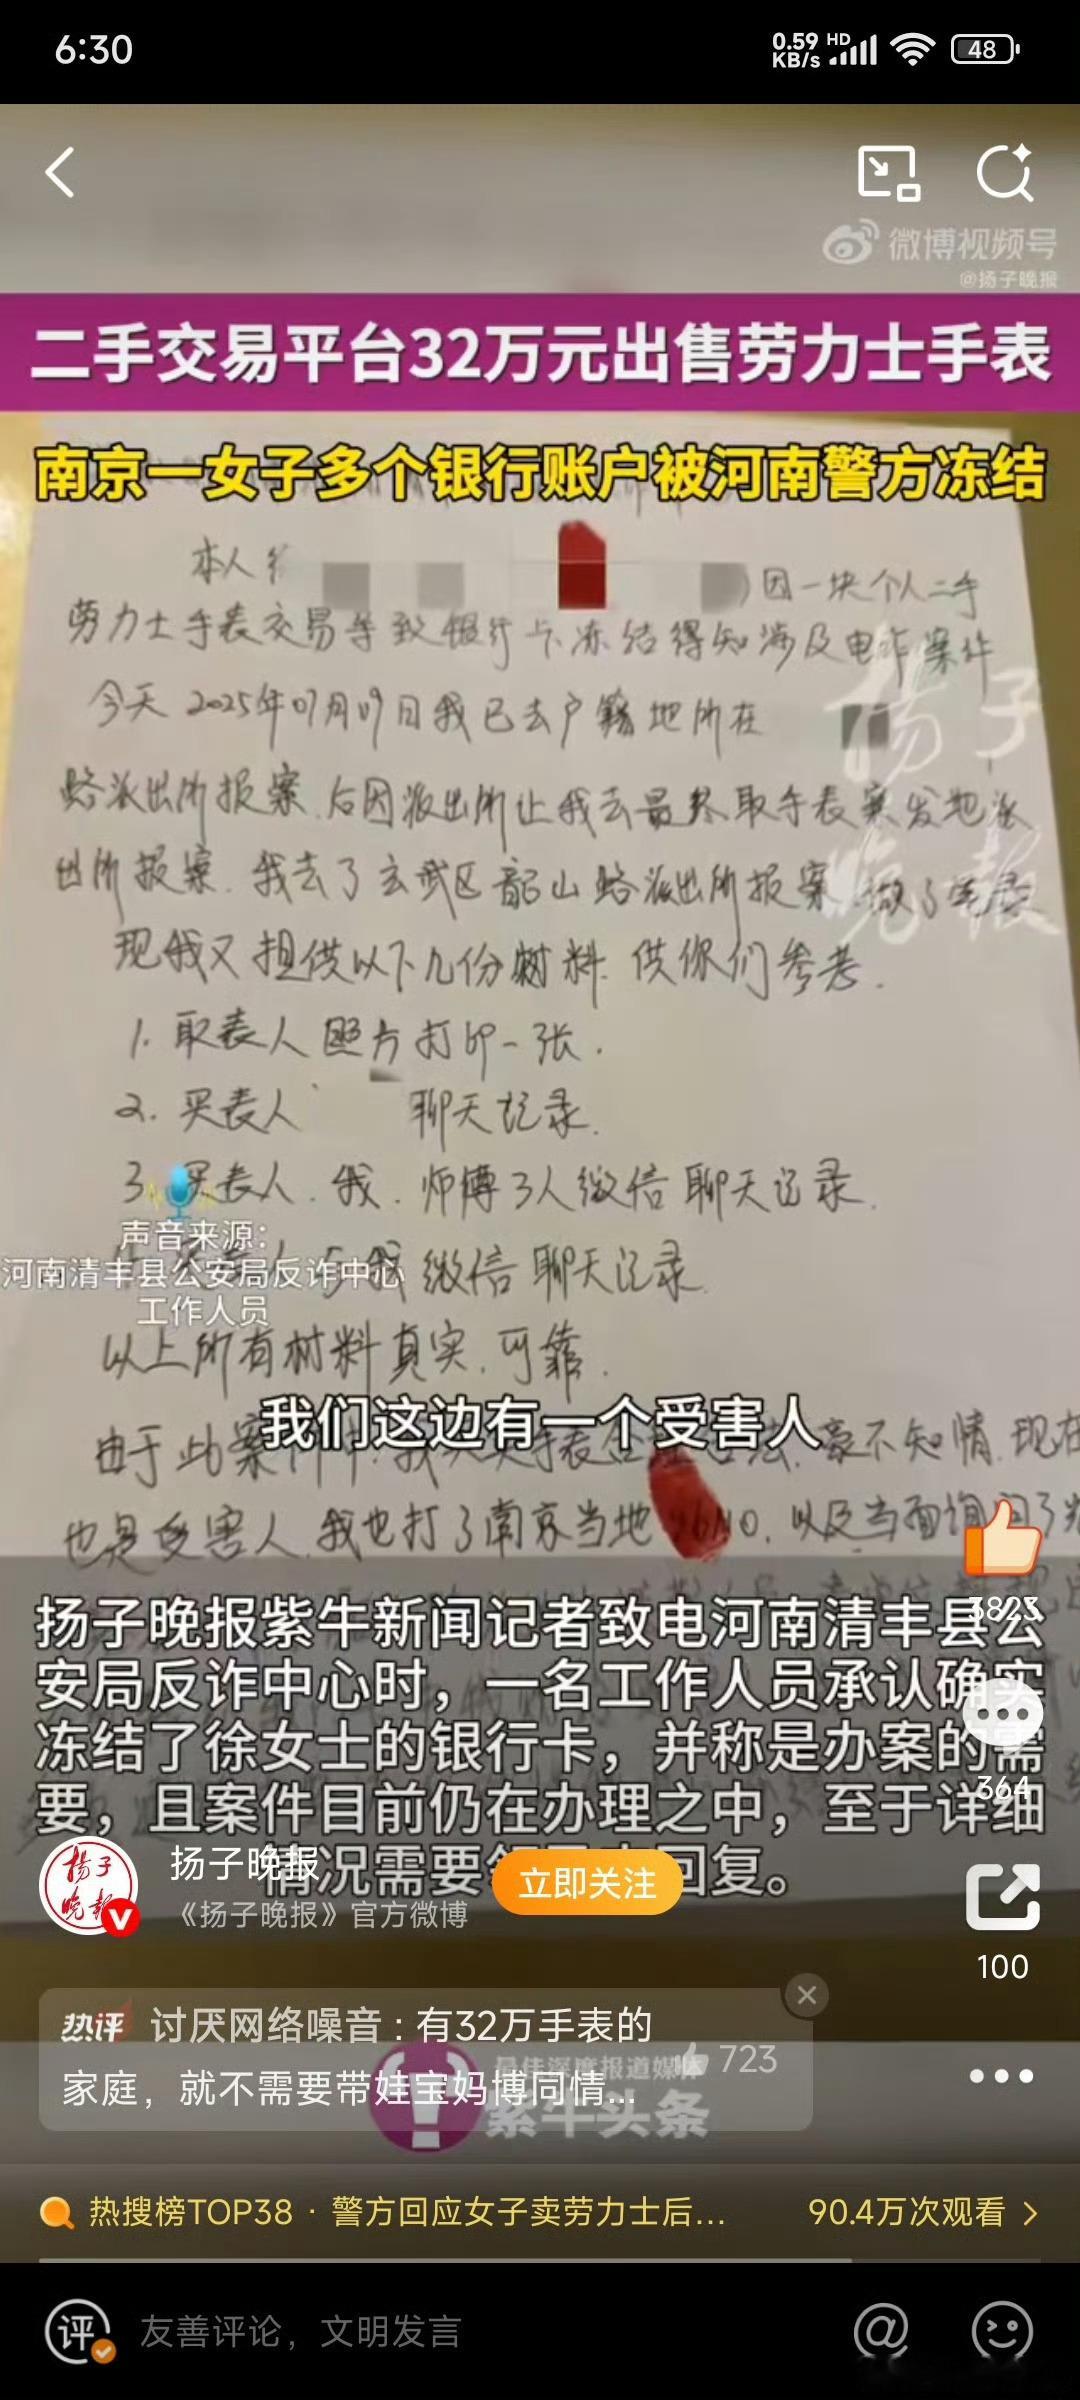 6:30
0.59 KB/s HD 48
微博视频号
@扬子晚报
二手交易平台32万元出售劳力士手表
南京一女子多个银行账户被河南警方冻结
本人 因一块个人二手
劳力士手表交易导致银行卡冻结得知涉及电诈案件
今天2025年07月09日我已去户籍地所在
路派出所报案.后因派出所让我去最终取手表案发地派
出所报案.我去了玄武区韶山路派出所报案 做了笔录
扬子晚报
现我又提供以下几份材料.供你们参考.
1.取表人照片打印一张.
2.买表人 聊天记录.
3.买表人.我.师傅3人微信聊天记录.
声音来源：
河南清丰县公安局反诈中心
工作人员
我 微信聊天记录.
以上所有材料真实.可靠.
我们这边有一个受害人
由于此案件中.我 手表 法.毫不知情.现在
也是受害人.我也打了南京当地 以及当面询问了
3823
扬子晚报紫牛新闻记者致电河南清丰县公
安局反诈中心时，一名工作人员承认确实
冻结了徐女士的银行卡，并称是办案的需
要，且案件目前仍在办理之中，至于详细
情况需要 回复。
364
扬子晚报
《扬子晚报》官方微博
立即关注
100
热评 讨厌网络噪音：有32万手表的
家庭，就不需要带娃宝妈博同情...
723
最佳深度报道媒体
紫牛头条
热搜榜TOP38 · 警方回应女子卖劳力士后... 90.4万次观看
评 友善评论，文明发言